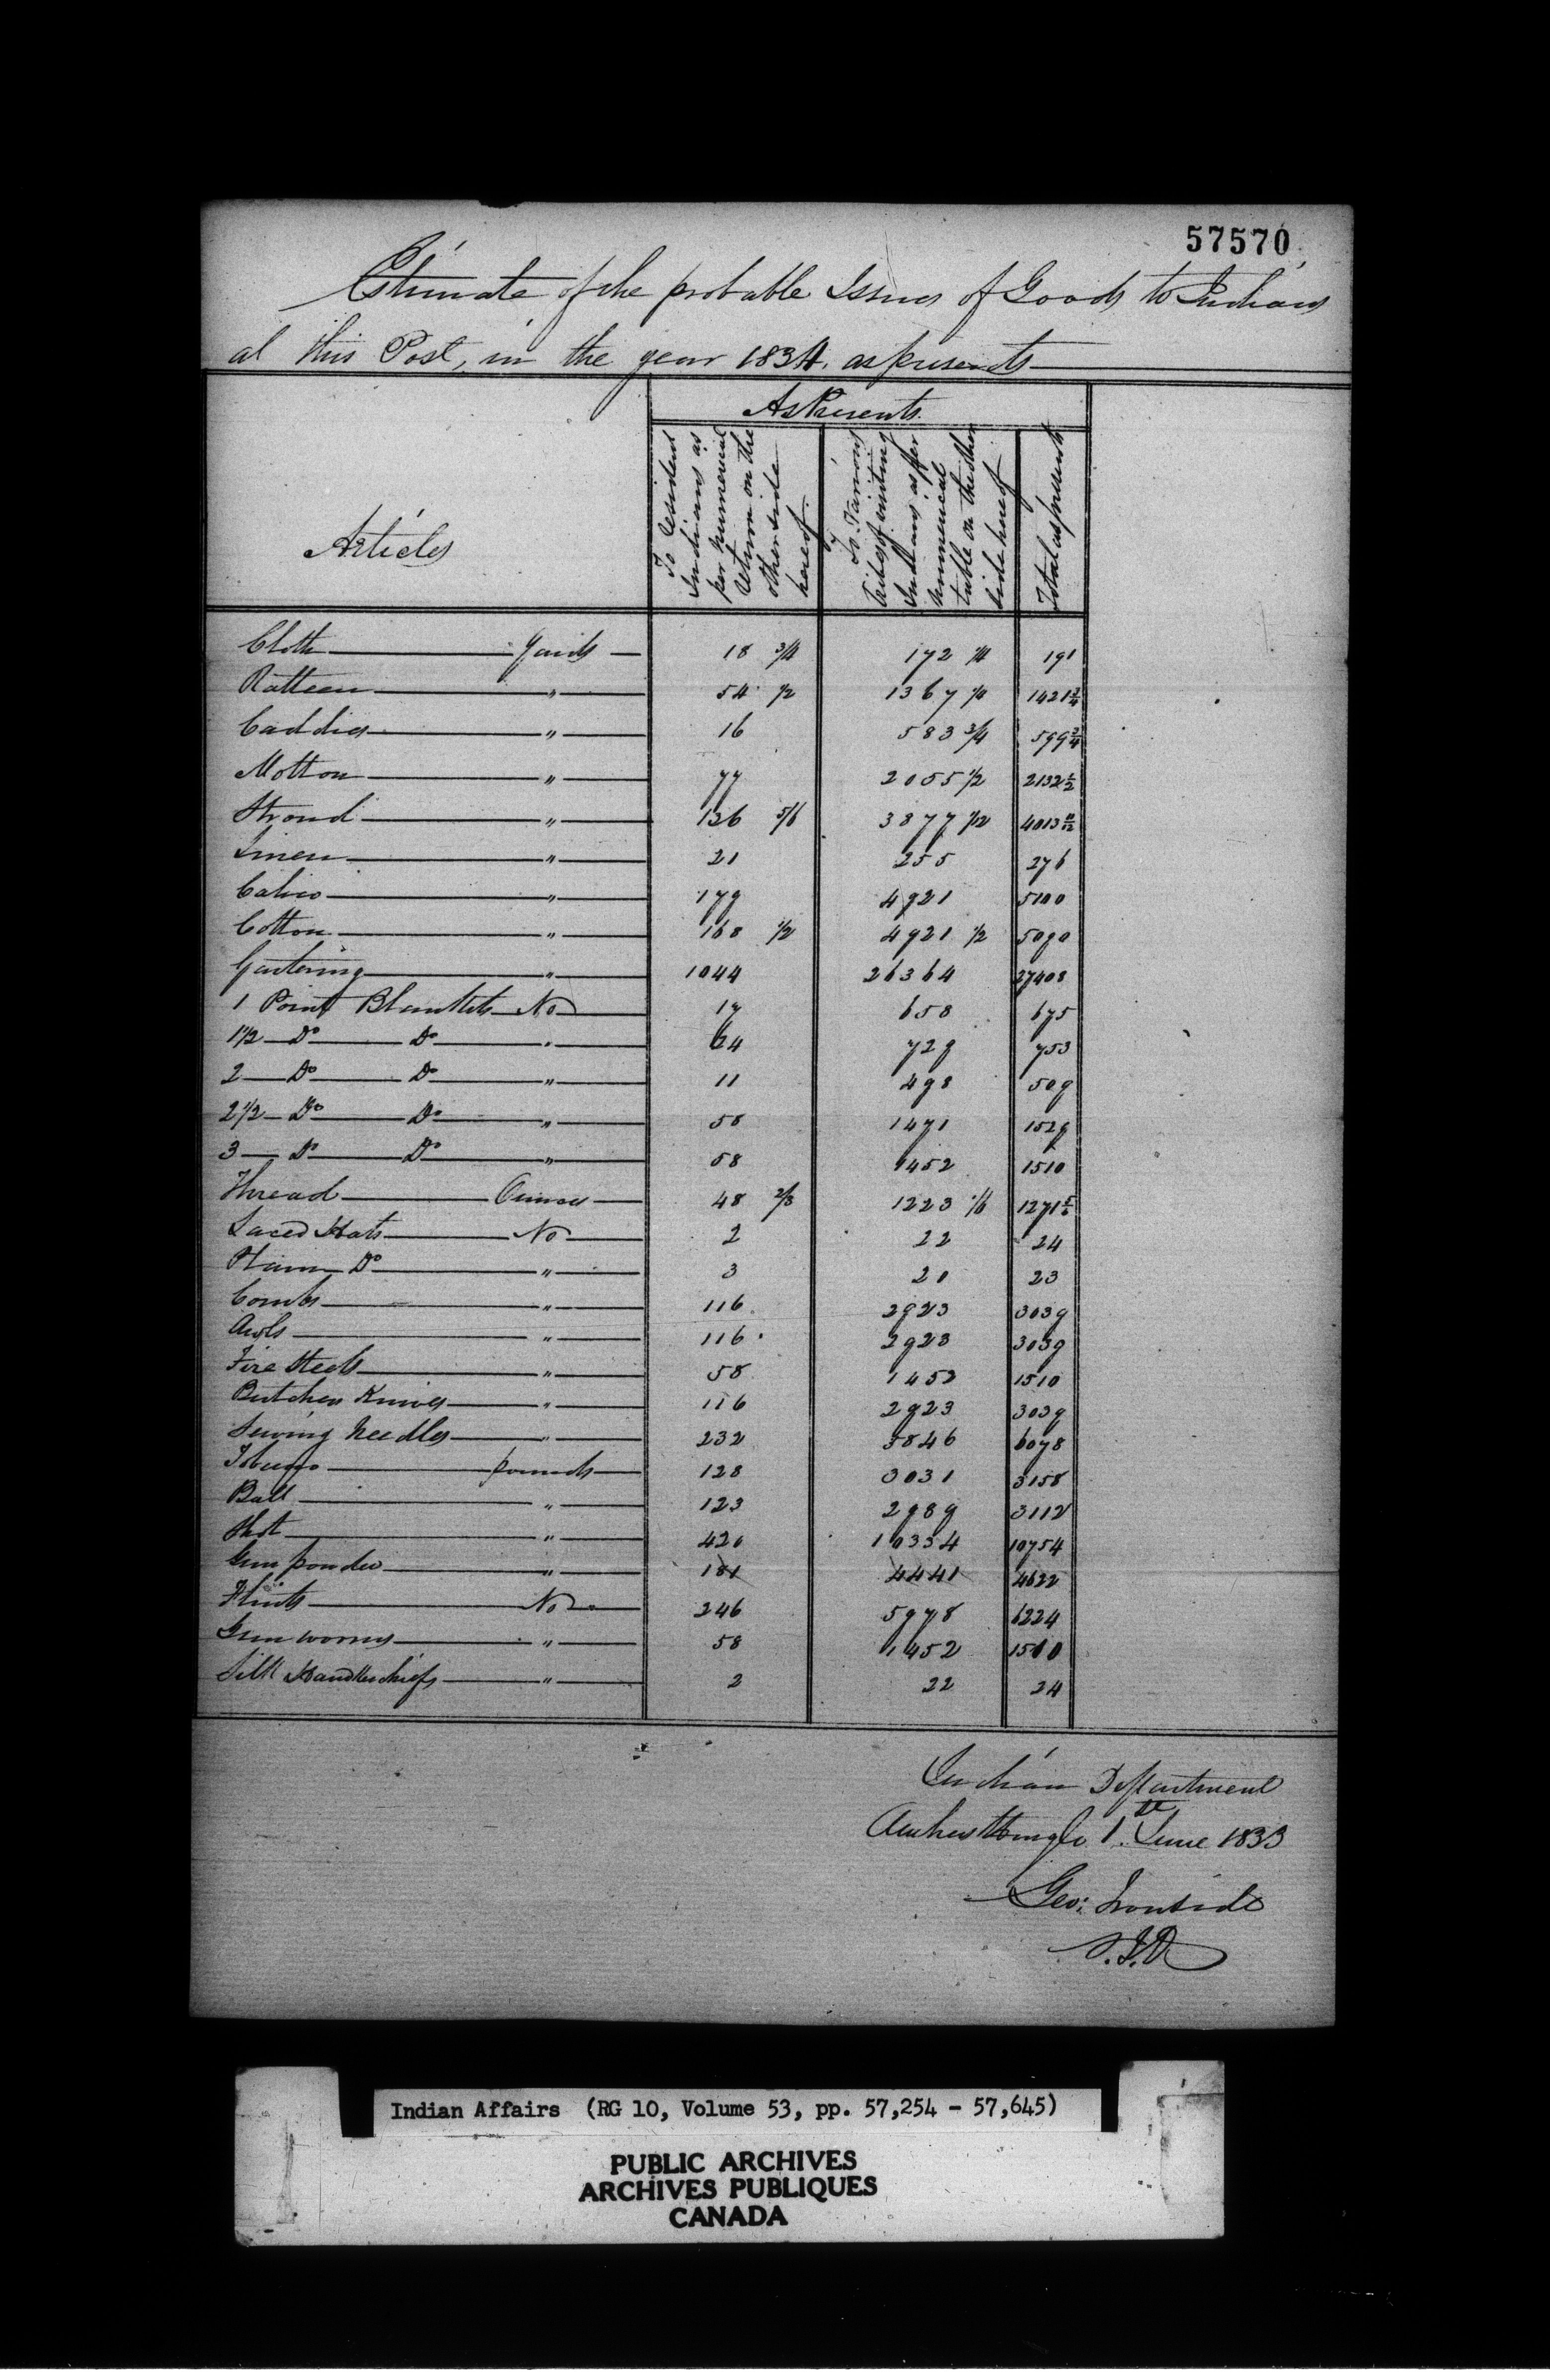 57570
Estimate of the probable Issues of Goods to Indians
at this Post, in the year 1834. as presents
As Presents
Articles
To Resident Indians as per Numerical Return on the other side hereof.
To Various Tribes of visiting Indians as per Numerical table on the other side hereof
Total as presents
Cloth Yards 18 3/4 172 1/4 191
Ratteen " 54 1/2 1367 1/4 1421 3/4
Caddies " 16 583 3/4 599 3/4
Molton " 77 2055 1/2 2132 1/2
Stroud " 136 5/6 3877 1/12 4013 11/12
Linen " 21 255 276
Calico " 179 4921 5100
Cotton " 168 1/2 4921 1/2 5090
Gartering " 1044 26364 27408
1 Point Blankets No 17 658 675
1 1/2 Do Do " 24 729 753
2 Do Do " 11 498 509
2 1/2 Do Do " 58 1471 1529
3 Do Do " 58 1452 1510
Thread Ounces 48 2/3 1223 1/6 1271 5/6
Laced Hats No 2 22 24
Plain Do " 3 20 23
Combs " 116 2923 3039
Awls " 116 2923 3039
Fire Steels " 58 1452 1510
Butcher Knives " 116 2923 3039
Sewing Needles " 232 5846 6078
Tobacco pounds 128 3031 3158
Ball " 123 2989 3112
Shot " 420 10334 10754
Gun powder " 181 4441 4622
Flints No 246 5978 6224
Gun worms " 58 1452 1510
Silk Handkerchiefs " 2 22 24
Indian Department
Amherstburgh 1. June 1833
Geo: Ironside
S.I.A
Indian Affairs (RG 10, Volume 53, pp. 57,254 - 57,645)
PUBLIC ARCHIVES
ARCHIVES PUBLIQUES
CANADA